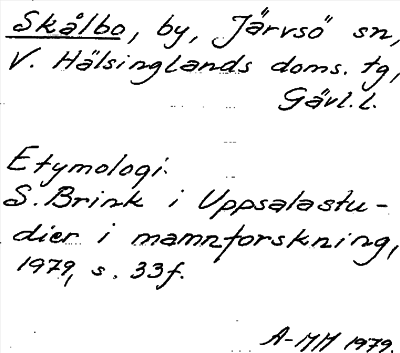 Skålbo, by, Järvsö sn,
V. Hälsinglands doms. tg,
Gävl.l.
Etymologi:
S. Brink i Uppsalastu-
dier i namnforskning,
1979, s. 33f.
A-MM 1979.